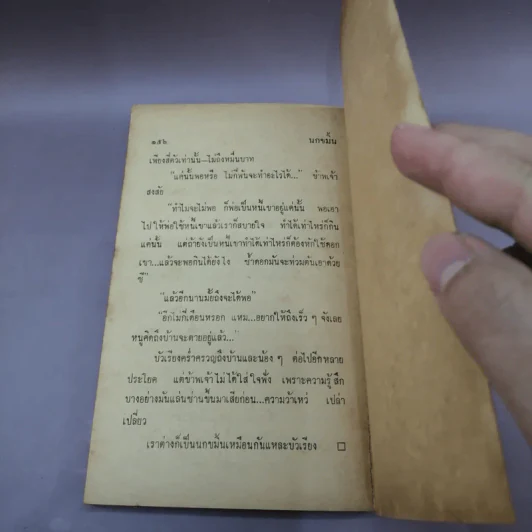 ๑๕๖ นกขมิ้น
เพียงสี่ตัวเท่านั้น—ไม่ถึงหมื่นบาท
"แค่นั้นพอหรือ ไม่กี่พันจะทำอะไรได้..." ข้าพเจ้า
สงสัย
"ทำไมจะไม่พอ ก็พ่อเป็นหนี้เขาอยู่แค่นั้น พอเอา
ไปให้พ่อใช้หนี้เขาแล้วเราก็สบายใจ ทำได้เท่าไหร่ก็กิน
แค่นั้น แต่ถ้ายังเป็นหนี้เขาทำได้เท่าไหร่ก็ต้องหักใช้ดอก
เขา...แล้วจะพอกินได้ยังไง ซ้ำดอกมันจะท่วมต้นเอาด้วย
ซี"
"แล้วอีกนานมั้ยถึงจะได้พอ"
"อีกไม่กี่เดือนหรอก แหม...อยากให้ถึงเร็ว ๆ จังเลย
หนูคิดถึงบ้านจะตายอยู่แล้ว..."
บัวเรียงคร่ำครวญถึงบ้านและน้อง ๆ ต่อไปอีกหลาย
ประโยค แต่ข้าพเจ้าไม่ได้ใส่ใจฟัง เพราะความรู้สึก
บางอย่างมันแล่นซ่านขึ้นมาเสียก่อน...ความว้าเหว่ เปล่า
เปลี่ยว
เราต่างก็เป็นนกขมิ้นเหมือนกันแหละบัวเรียง □